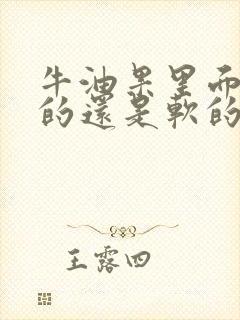 牛油果里面
的還是軟的
王露四